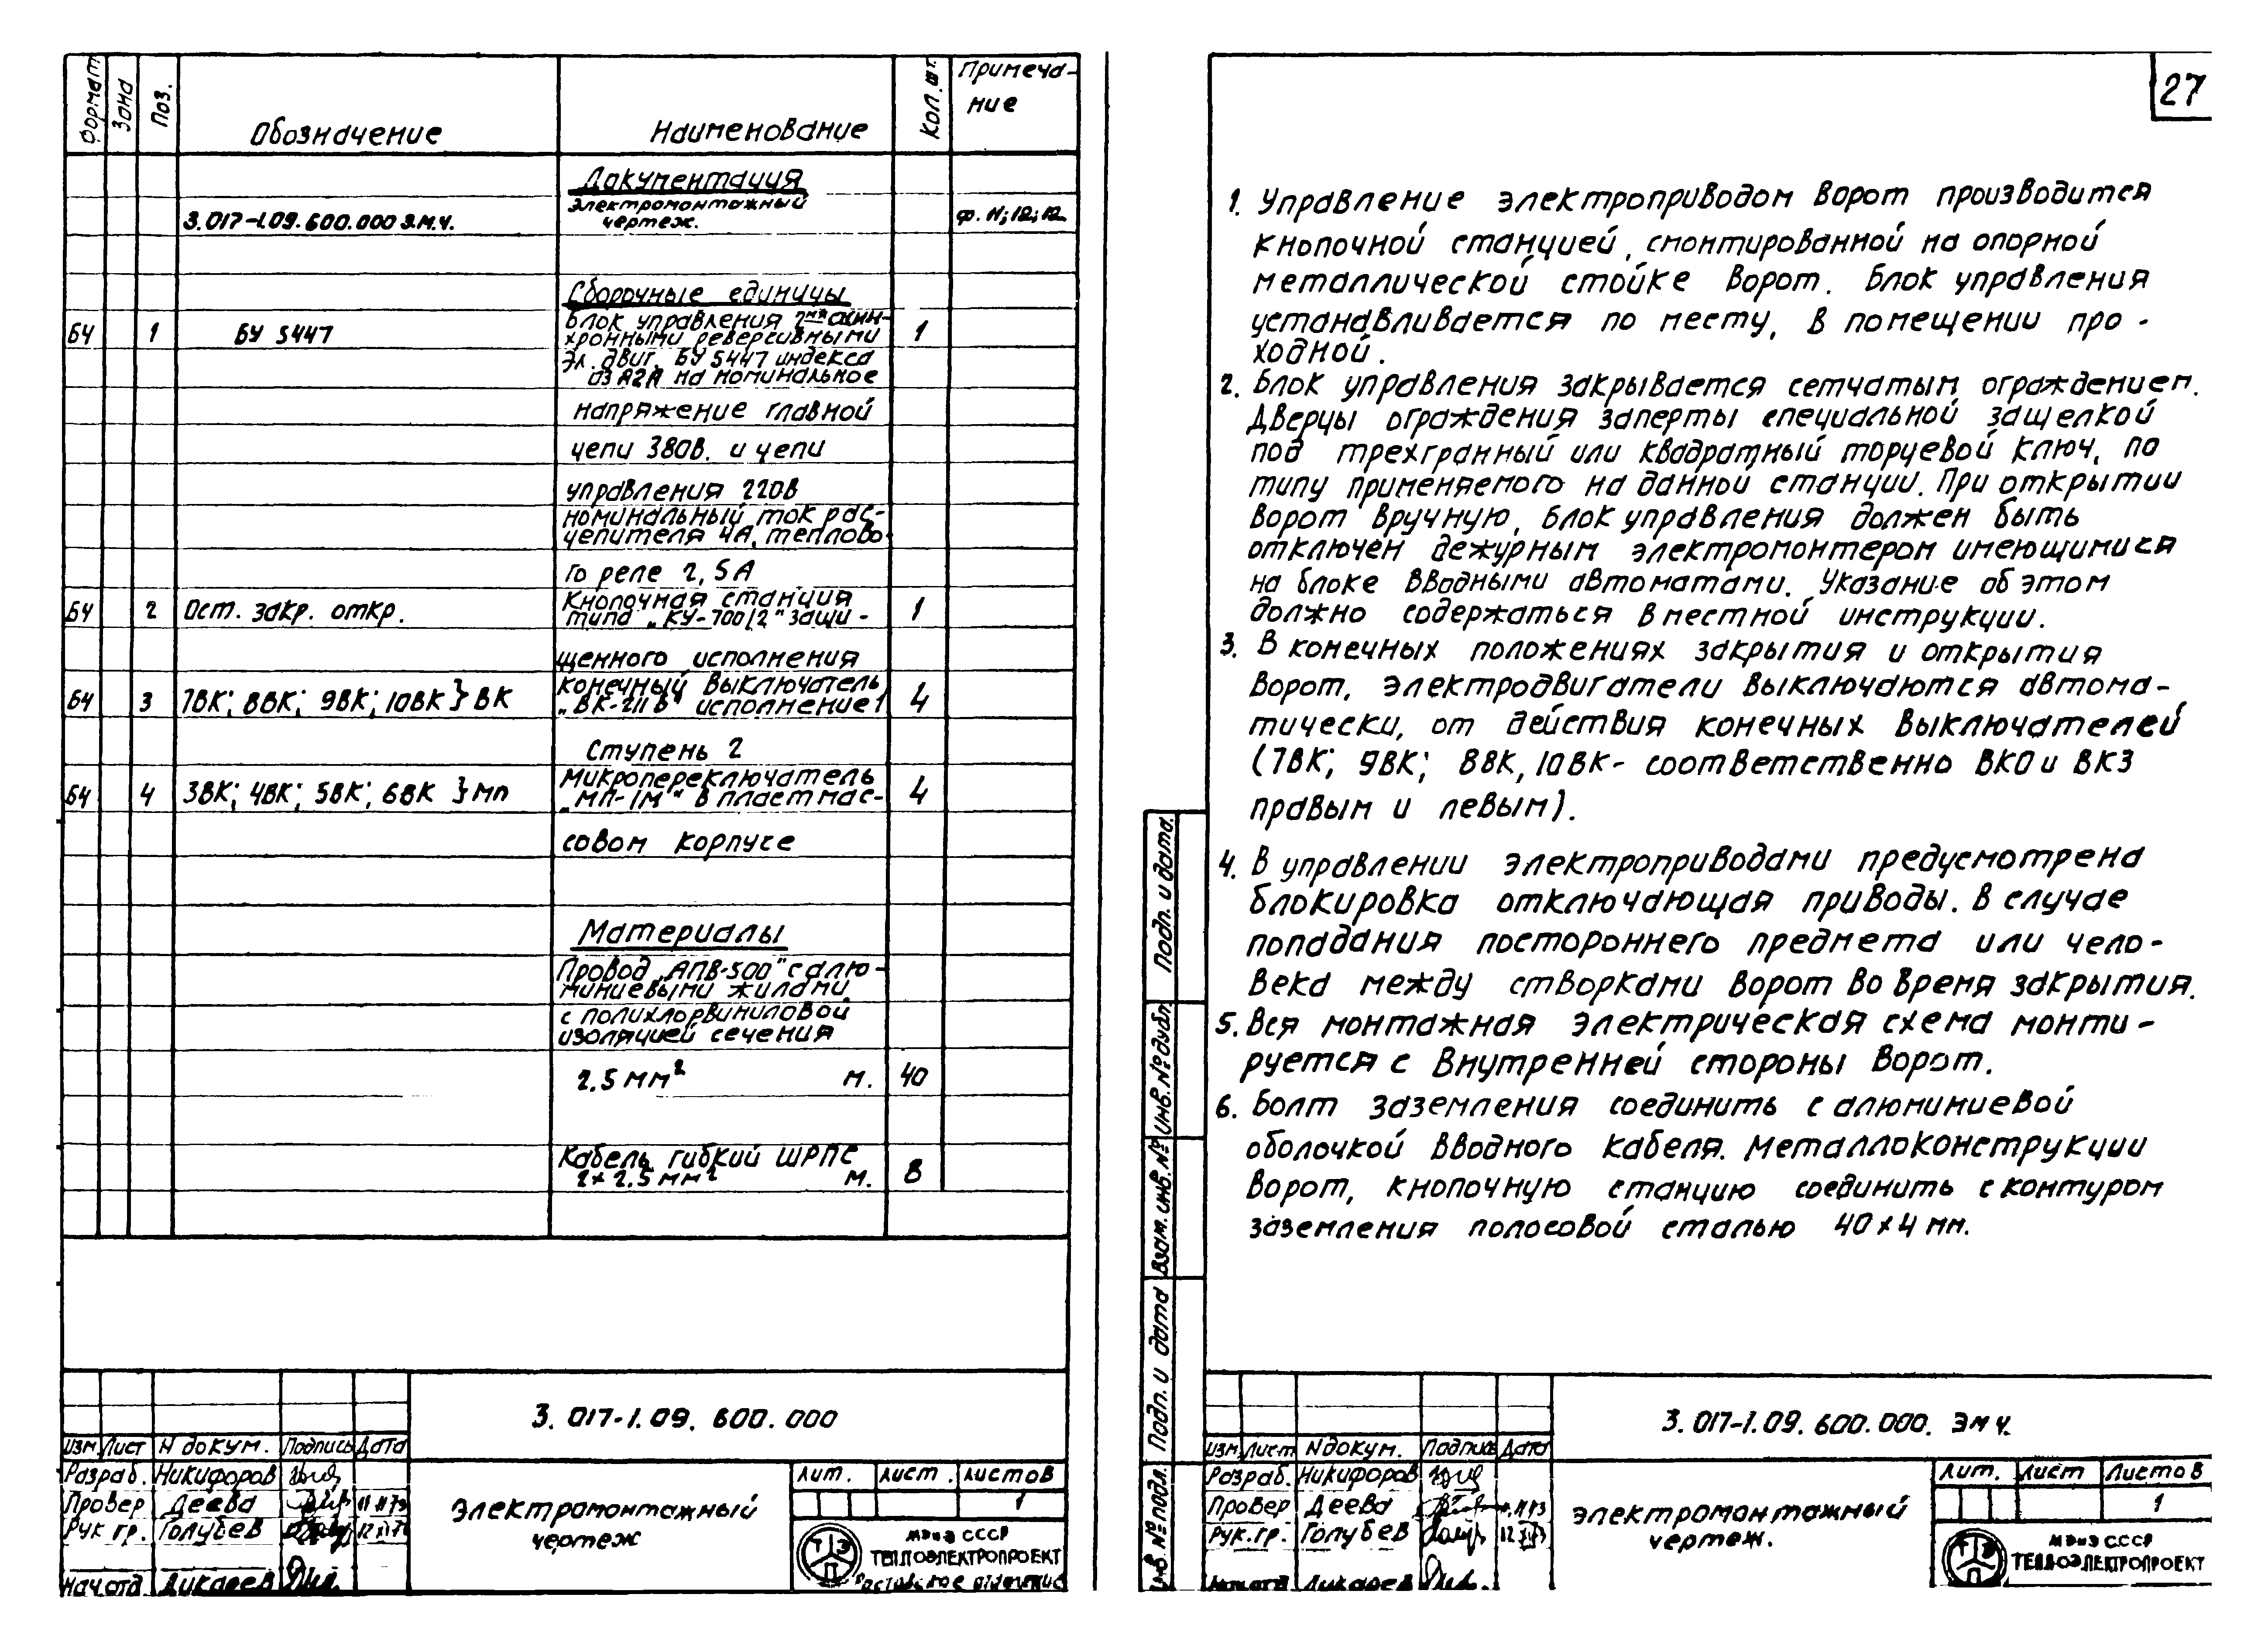 Формат
Зона
Поз.
Обозначение
Наименование
Кол. шт.
Примеча-
ние
Документация
3.017-1.09.600.000 Э.М.Ч.
Электромонтажный
чертеж.
ф. 11; 12; 12
Сборочные единицы
БЧ 1 БУ 5447
Блок управления 2мя асин-
хронными реверсивными
Эл. двиг. БУ 5447 индекса
03 А2А на номинальное
1
напряжение главной
цепи 380В. и цепи
управления 220В
номинальный ток рас-
цепителя 4А, теплово-
го реле 2,5А
БЧ 2 Ост. закр. откр.
Кнопочная станция
типа „КУ-700/2" защи-
1
щенного исполнения
БЧ 3 7ВК; 8ВК; 9ВК; 10ВК } ВК
конечный выключатель
„ВК-211В" исполнение 1
4
Ступень 2
БЧ 4 3ВК; 4ВК; 5ВК; 6ВК } МП
Микропереключатель
„МП-1М" в пластмас-
4
совом корпусе
Материалы
Провод „АПВ-500" с алю-
миниевыми жилами
с полихлорвиниловой
изоляцией сечения
2.5 мм² м. 40
Кабель гибкий ШРПС
2х2.5 мм² м. 8
3.017-1.09.600.000
Изм Лист N докум. Подпись Дата
Разраб. Никифоров
Провер Деева
Рук гр. Голубев
Нач отд. Дикарев
Электромонтажный
чертеж
Лит. Лист. Листов
1
Т Э П
МЭиЭ СССР
ТЕПЛОЭЛЕКТРОПРОЕКТ
Ростовское отделение
27
1. Управление электроприводом ворот производится
кнопочной станцией, смонтированной на опорной
металлической стойке ворот. Блок управления
устанавливается по месту, в помещении про -
ходной.
2. Блок управления закрывается сетчатым ограждением.
Дверцы ограждения заперты специальной защелкой
под трехгранный или квадратный торцевой ключ, по
типу применяемого на данной станции. При открытии
ворот вручную, блок управления должен быть
отключен дежурным электромонтером имеющимися
на блоке вводными автоматами. Указание об этом
должно содержаться в местной инструкции.
3. В конечных положениях закрытия и открытия
ворот, электродвигатели выключаются автома-
тически, от действия конечных выключателей
(7ВК; 9ВК; 8ВК, 10ВК- соответственно ВКО и ВКЗ
правым и левым).
4. В управлении электроприводами предусмотрена
блокировка отключающая приводы. В случае
попадания постороннего предмета или чело-
века между створками ворот во время закрытия.
5. Вся монтажная электрическая схема монти-
руется с внутренней стороны ворот.
6. Болт заземления соединить с алюминиевой
оболочкой вводного кабеля. Металлоконструкции
ворот, кнопочную станцию соединить с контуром
заземления полосовой сталью 40х4 мм.
Подп. и дата.
Инв. № дубл
Взам. инв. №
Подп. и дата
Инв № подл.
3.017-1.09.600.000. ЭМЧ.
Изм Лист N докум. Подпись Дата
Разраб. Никифоров
Провер Деева
Рук.гр. Голубев
Нач отд Дикарев
Электромонтажный
чертеж.
Лит. Лист Листов
1
Т Э П
МЭиЭ СССР
ТЕПЛОЭЛЕКТРОПРОЕКТ